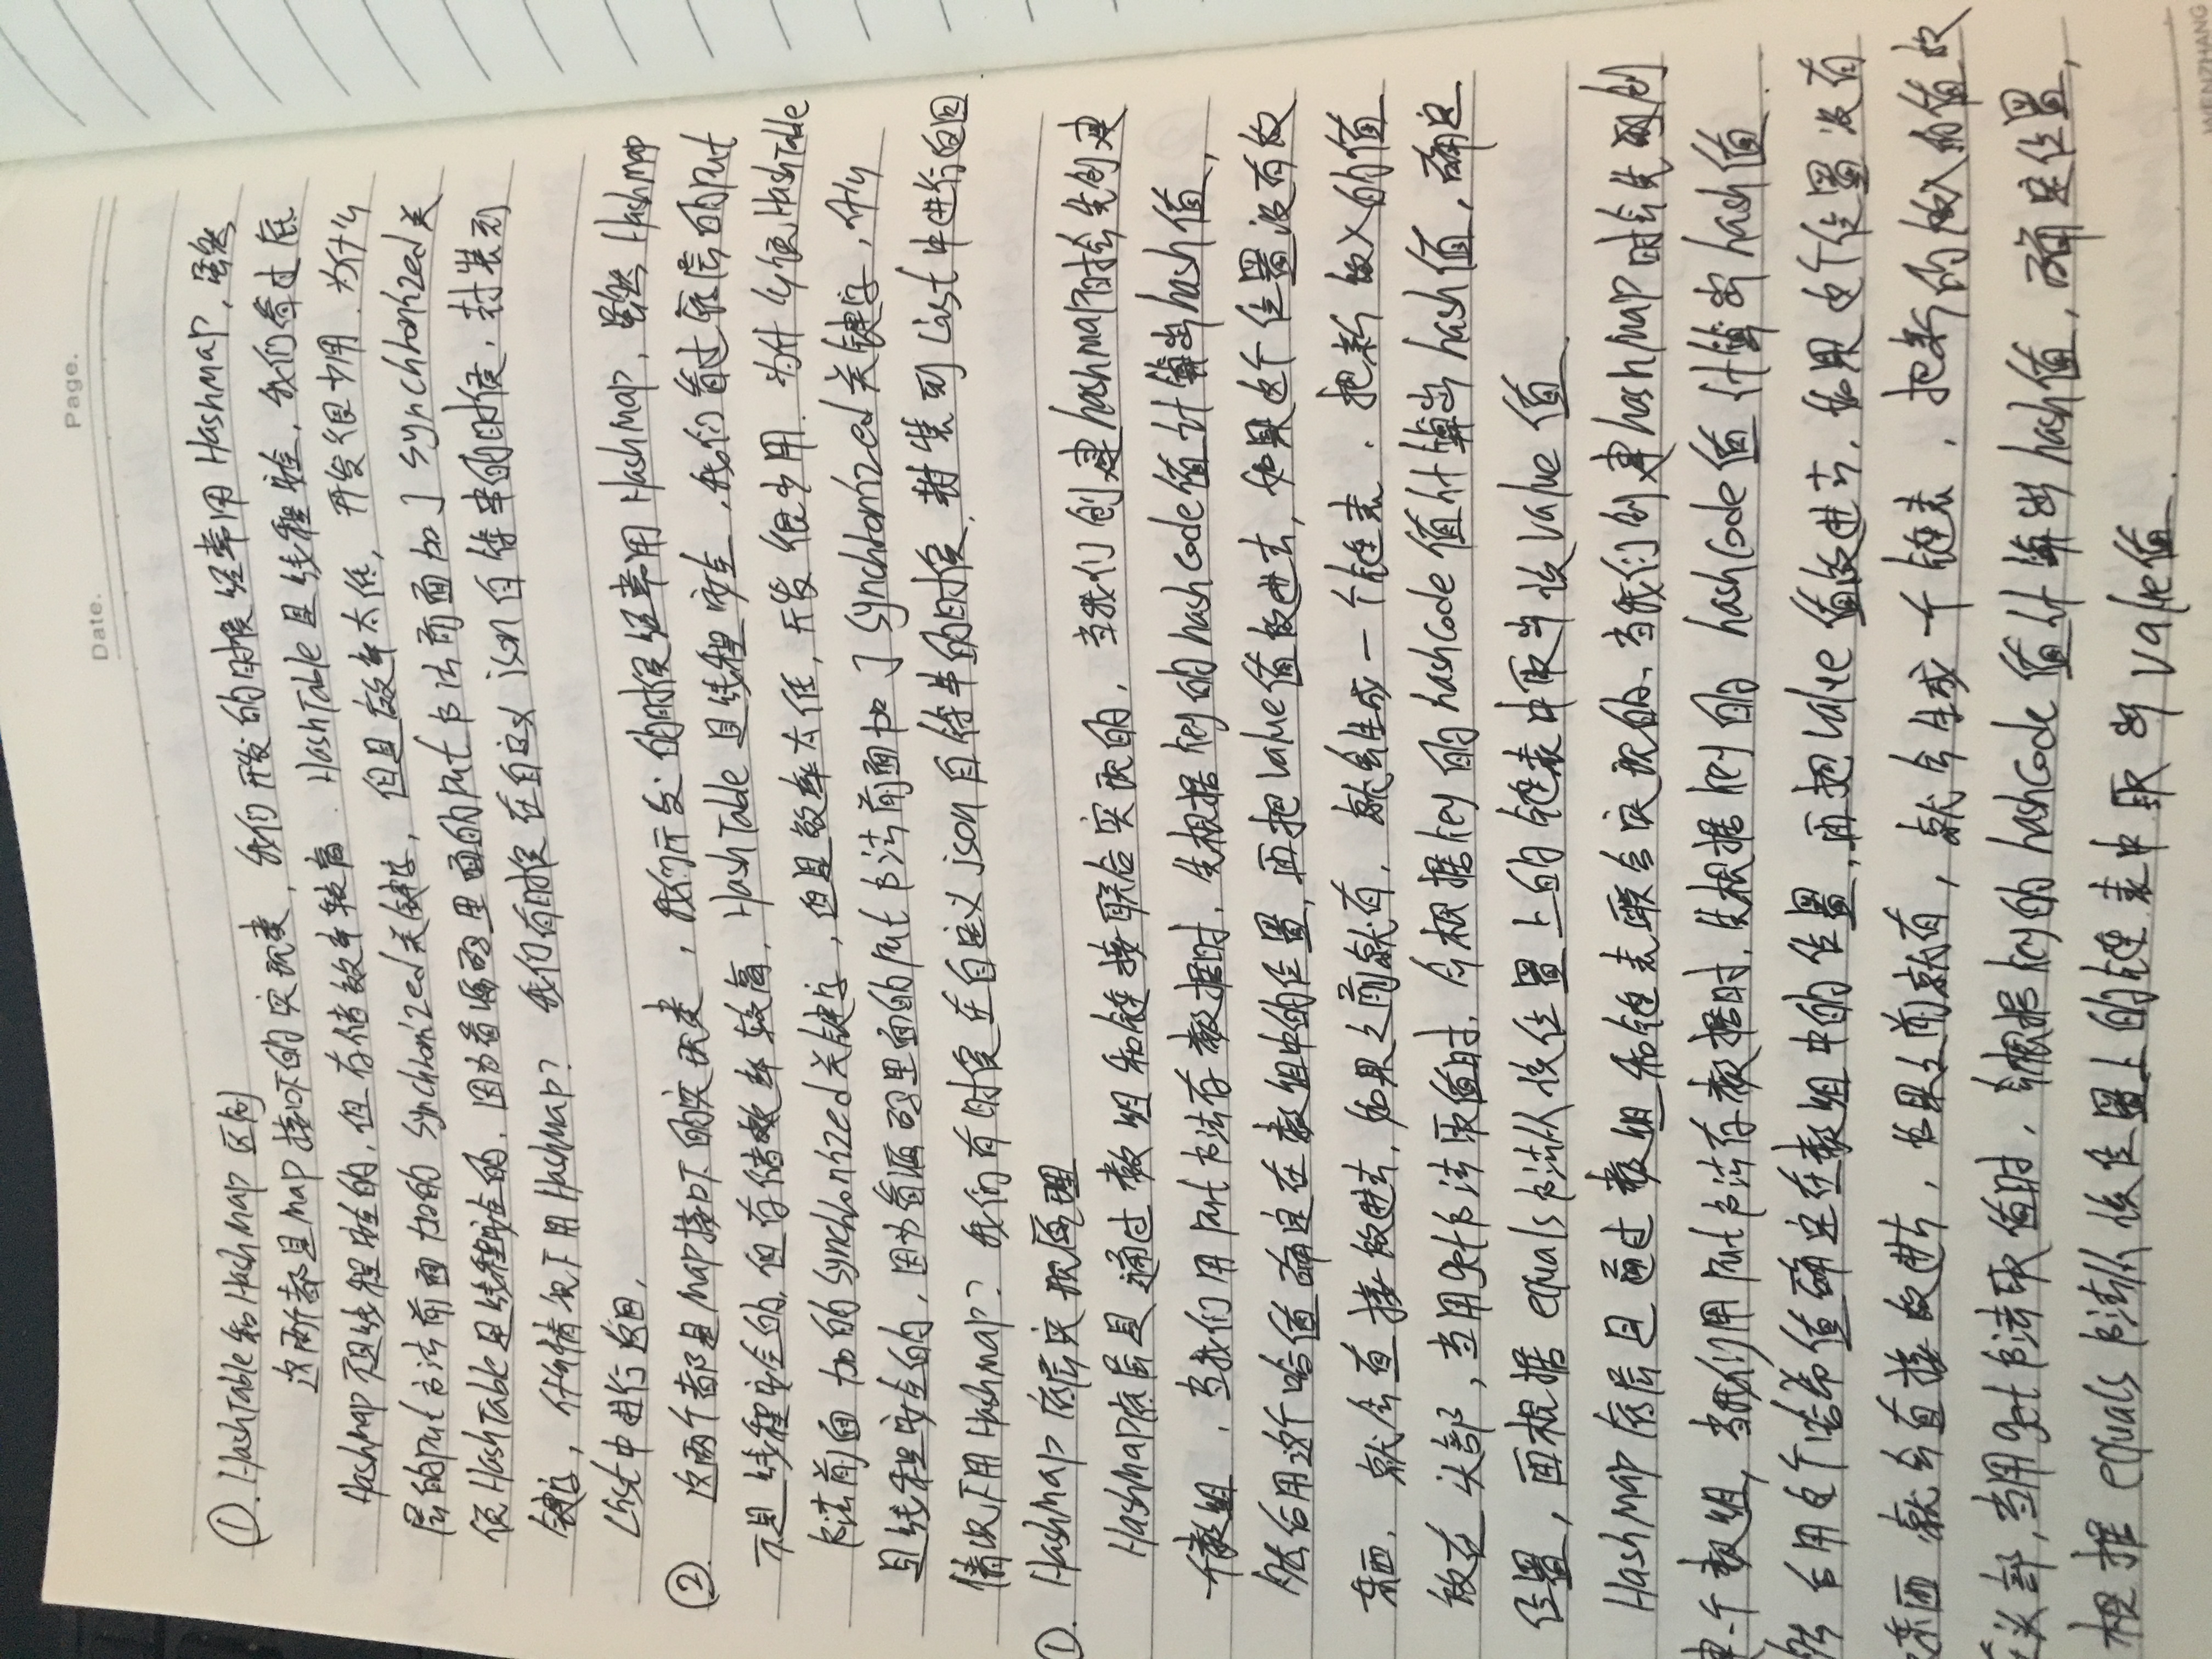 Date.
Page.
①.HashTable和HashMap 区别
这两个都是map接口下的实现类,我们开发的时候经常用HashMap,虽然
HashMap不是线程安全的,但存储效率较高.HashTable是线程安全,我们看过底
层的put方法前面加的synchronized关键字,但是效率太低,开发很少用.为什么
使HashTable是线程安全的,因为看源码里面的put方法前面加了synchronized关
键字,什么情况下用HashMap?我们有时候在自定义json自符串的时候,封装到
List中进行返回,
②. 这两个都是Map接口下的实现类,我们开发的时候经常用HashMap,虽然HashMap
不是线程安全的,但存储效率较高,HashTable是线程安全,我们看过底层的put
方法前面加的synchronized关键字,但是效率太低,开发很少用.为什么使HashTable
是线程安全的,因为看源码里面的put方法前面加了synchronized关键字,什么
情况下用HashMap?我们有时候在自定义json自符串的时候,封装到List中进行返回
①. HashMap底层实现原理
HashMap底层是通过数组和链接联合实现的,当我们创建hashMap时会先创建
一个数组,当我们用put方法存数据时,先根据key的hashcode值计算出hash值,
然后用这个哈值确定在数组中的位置,再把value值放进去,如果这个位置没有放
东西,就会直接放进去,如果之前就有,就会生成一个链表,把新放入的值
放在头部,当用get方法取值时,会根据key的hashcode值计算出hash值,确定
位置,再根据equals方法从该位置上的链表中取出该value值
HashMap底层是通过数组和链表联合实现的,当我们创建hashMap时会先创
建一个数组,当我们用put方法存数据时,先根据key的hashcode值计算出hash值.
然后用这个哈希值确定在数组中的位置,再把value值放进去,如果这个位置没有
东西就会直接放进去,如果之前就有,就会生成一个链表,把新的放入的值放
在头部,当用get方法取值时,会根据key的hashcode值计算出hash值,确定位置,
根据equals方法从该位置上的链表中取出value值.
WENZHANG